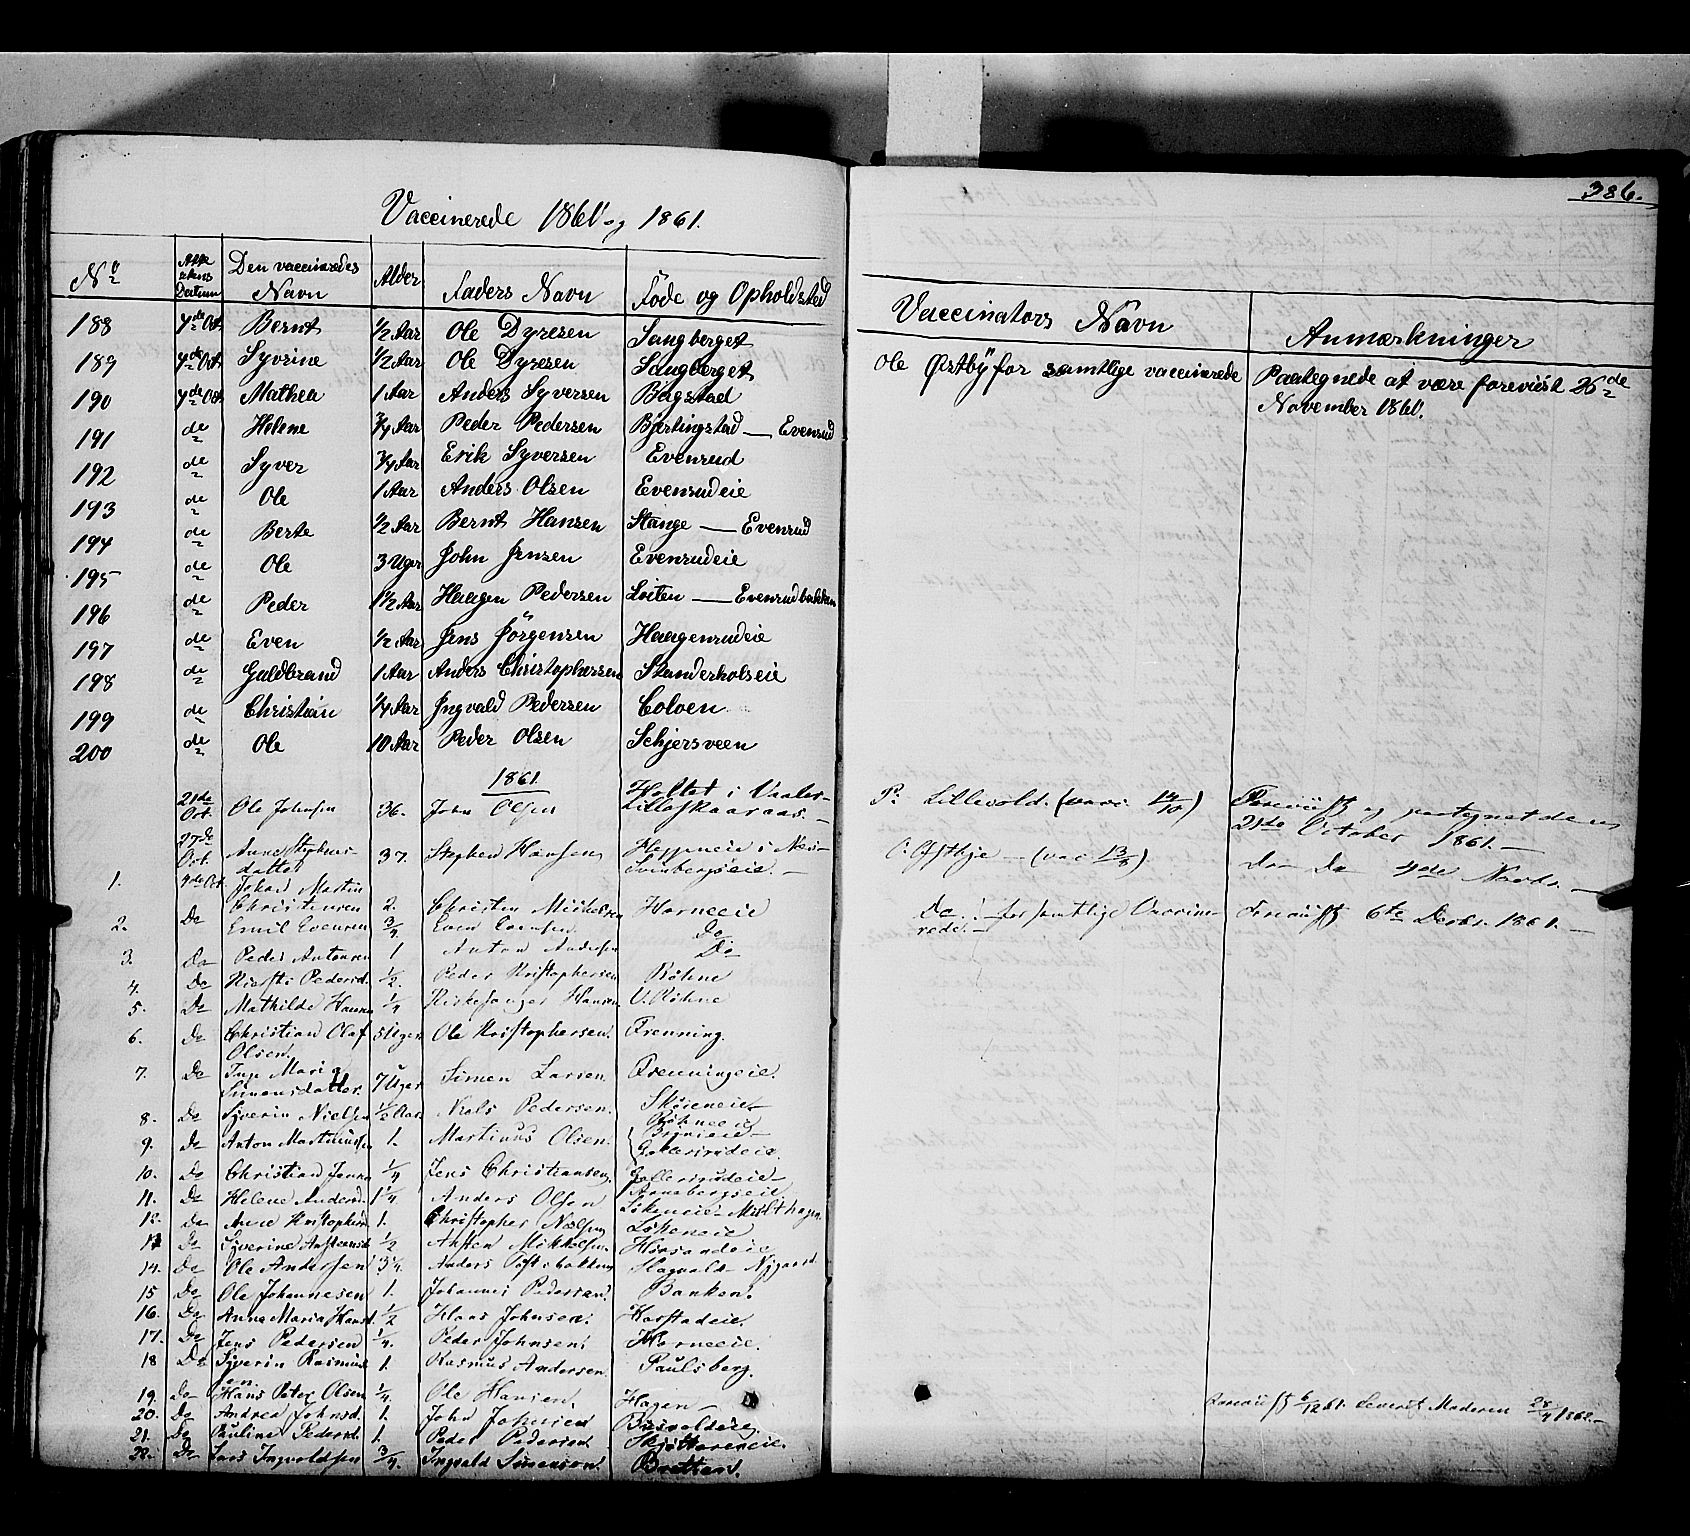 Vaccinerede 1860 og 1861.
386.
No Attestens Datum Den vaccineredes Navn Alder Faders Navn Føde og Opholdsted Vaccinators Navn Anmærkninger
188 7de Oct Bernt 1/2 Aar Ole Dyresen Sangberget Ole Østby for samtlige vaccinerede Paategnede at være foreviist 26de
189 7de Oct Syvrine 1/2 Aar Ole Dyresen Sangberget November 1860.
190 7de Oct Mathea 1 Aar Anders Syversen Bagstad
191 do Helene 3/4 Aar Peder Pedersen Bjerlingstad — Evensrud
192 do Syver 3/4 Aar Erik Syversen Evensrud
193 do Ole 1 Aar Anders Olsen Evensrudeie
194 do Berte 1/2 Aar Bernt Hansen Stange — Evensrud
195 do Ole 3 Uger John Jensen Evensrudeie
196 do Peder 1 1/2 Aar Haagen Pedersen Løiten — Evensrudbakken
197 do Even 1/2 Aar Jens Jörgensen Haagensrudeie
198 do Guldbrand 1 Aar Anders Christophersen Skanderholseie
199 do Christian 1/4 Aar Ingvald Pedersen Coloen
200 do Ole 10 Aar Peder Olsen Schjersveen
1861.
21de Oct. Ole Johnsen 36. John Olsen Holtet i Vaaler – Lilleskaaraas. – P. Lillevold. (vacc. 14/10) Foreviist og paategnet den
21de October 1861. –
27de Oct. Anne Stephensdatter 37. Stephen Hansen i Nes – Svenbergseie. – O. Østbye – (vac 13/8). Do Do 4de Novbr. –
1. 7de Oct. Johan Martin Christensen 2. Christen Mikkelsen Horneeie Do. – for samtlige Vaccinerede. – Foreviist 6te Decbr. 1861. –
2. Do Emil Evensen 3/4 Even Evensen Do
3. Do Peder Antonsen 1 Anton Andersen Do
4. Do Kirsti Pedersd. 1/2. Peder Kristophersen Röhne
5. Do Mathilde Hansen 1/4 Kirkesanger Hansen V. Röhne
6. Do Christian Olaf Olsen. 5 Uger Ole Kristophersen. Frenning.
7. Do Inge Maria Simensdatter 7 Uger Simen Larsen Frenningeie.
8. Do Syverin Nielsen 1/2 Aar Niels Pedersen. Skøieneie – Röhneeie
9. Do Anton Martinussen 1. Martinus Olsen.
10. Do Christian Jensen 1/4 Jens Christiansen
11. Do Helene Andersd. 1 1/4 Anders Olsen Arnebergseie
12. Do Anne Kristophersd. 1. Christopher Nielsen Løkeneie –
13 Do Syverine Anstensd. 1/2 Ansten Mikkelsen. Løkeneie
14. Do Ole Andersen 3/4. Anders – Nygaard
15 Do Ole Johannesen 1. Johannes Pedersen. Banken.
16. Do Anne Maria Hansd. 1/2 Klaas Johnsen. Horstadeie.
17. Do Jens Pedersen 1/4. Peder Johnsen. Horneeie.
18 Do Syverin Rasmussen 1. Rasmus Andersen. Paulsberg.
19. Do Hans Peter Olsen 1/4. Ole Hansen Hagen – Foreviist 6/12 61. Leveret Moderen 28/4 1862 –
20. Do Andrea Johnsd. 1. John Johnsen
21. Do Pauline Pedersd. 1. Peder Pedersen
22. Do Lars Ingvoldsen 3/4. Ingvald Simensen. Bratten.